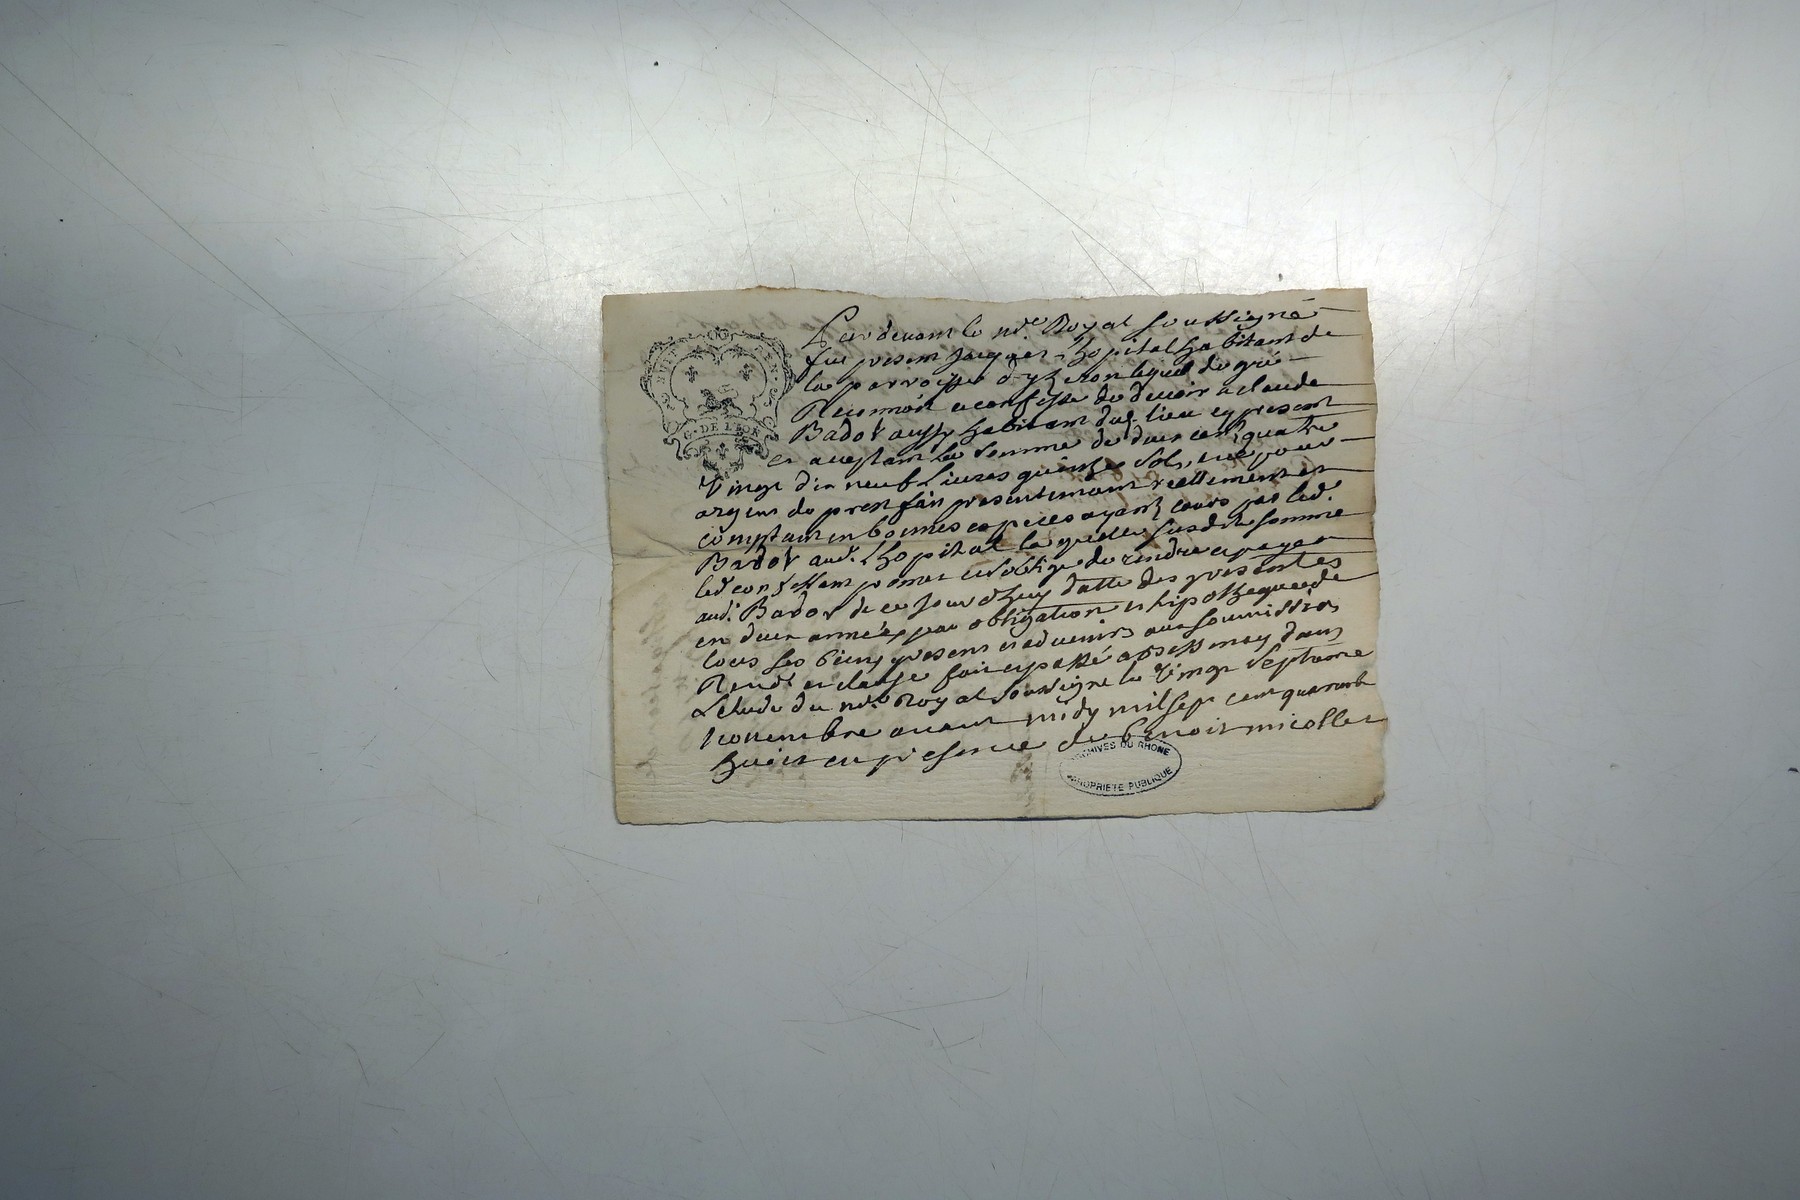 HUIT DEN.
G. DE LYON
Par devant le no.re Royal soussigné
fut present Jacques Lhopital habitant de
la parroisse d'yzeron lequel de gré
Reconnoit et confesse de devoir a claude
Bador aussy habitant dud. lieu cy present
et acceptant la somme de deux cent quatre
vingt dix neuf Livres quinze sols, et ce pour
argent de prest fait presentement reellement et
comptant en bonnes especes ayant cours par led.
Bador aud. Lhopital laquelle susditte somme
led. confessant promet et soblige de rendre et payer
aud. Bador de ce jourdhuy datte des presentes
en deux années par obligation et hipotheque de
tous ses biens presens et advenirs aux soumissions
Renon et clause fait et passé a Bessenay dans
Letude du no.re Royal soussigné le vingt septieme
novembre avant midy mil sept cent quarante
huit en presence de benoit micollet
ARCHIVES DU RHONE
PROPRIETE PUBLIQUE